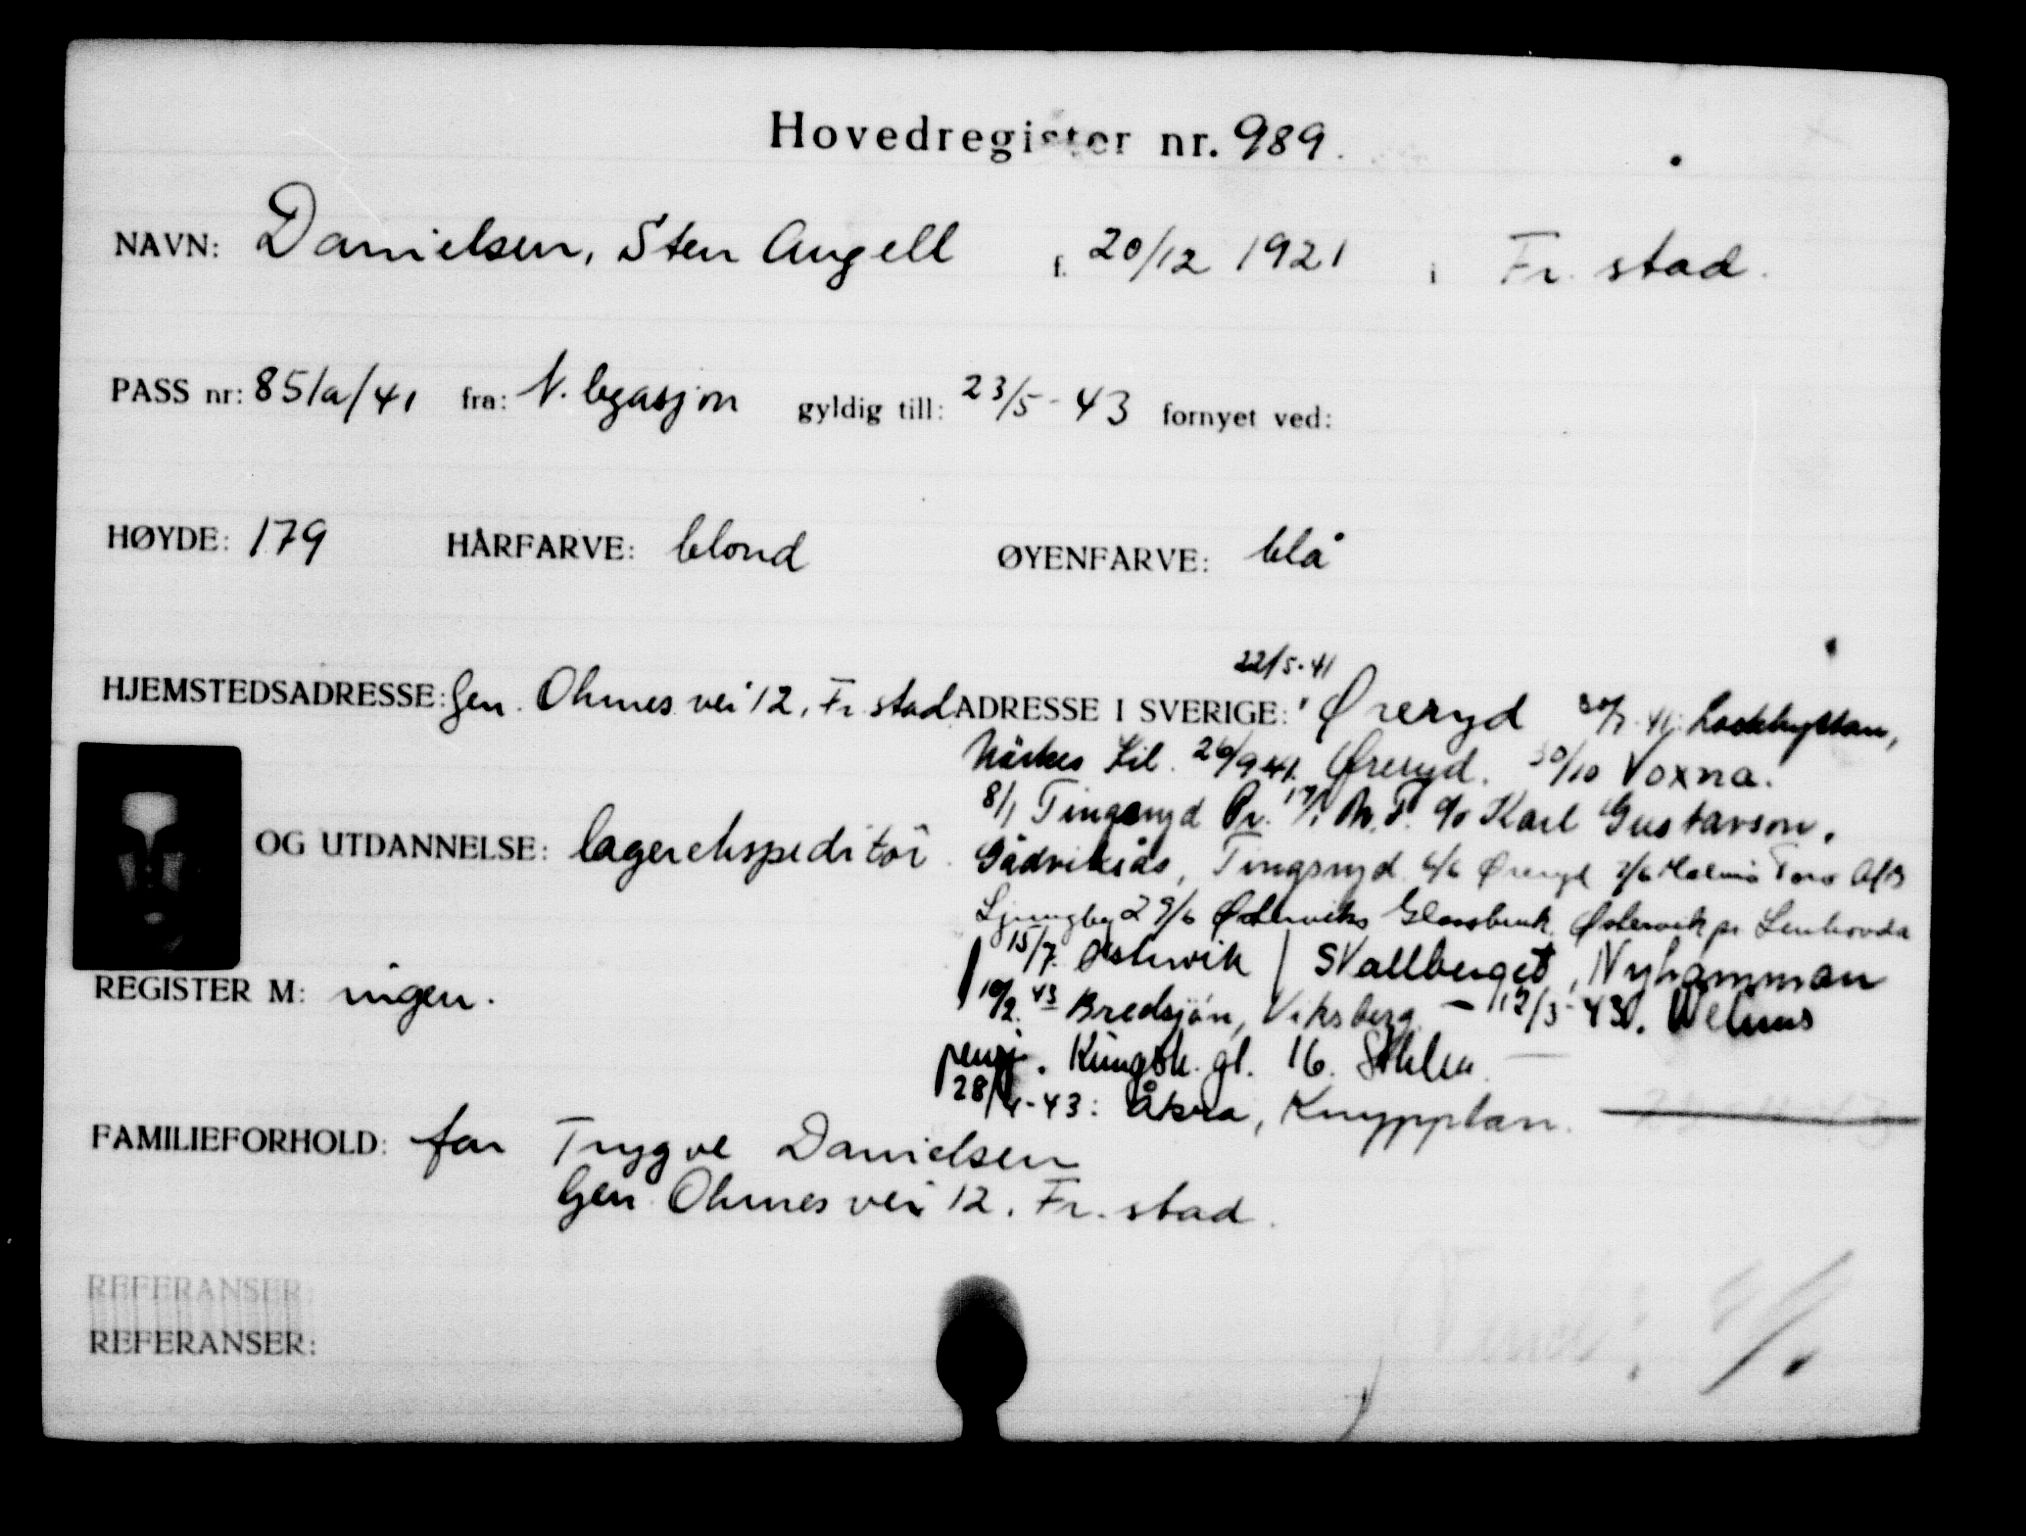 Hovedregister nr. 989.
NAVN: Danielsen, Sten Angell f. 20/12 1921 i Fr. stad.
PASS nr: 851a/41 fra: N. legasjon gyldig till: 23/5-43 fornyet ved:
HØYDE: 179 HÅRFARVE: blond ØYENFARVE: blå
22/5-41
HJEMSTEDSADRESSE: Gen. Ohmes vei 12, Fr. stad ADRESSE I SVERIGE: Øreryd
Närkes Kil. 26/9 41. Øreryd. 30/10 Voxna.
8/1 Tingsryd Pr. c/o Karl Gustavson,
OG UTDANNELSE: lagerekspeditør. Gådvikås, Tingsryd 6/6 Øreryd
Ljungby 29/6 Østerviks Glassbruk, Østervik pr Lenhovda
15/7. Østervik | Skallberget, Nyhammman
REGISTER M: ingen. 10/2. 43 Bredsjön, Viksberg - 12/3-43. Welins
pensj. Kungsh. gt. 16. Sthlm
28/4-43: Åkra, Knypplan.
FAMILIEFORHOLD: far Trygve Danielsen
Gen Ohmes vei 12. Fr. stad.
REFERANSER:
REFERANSER: